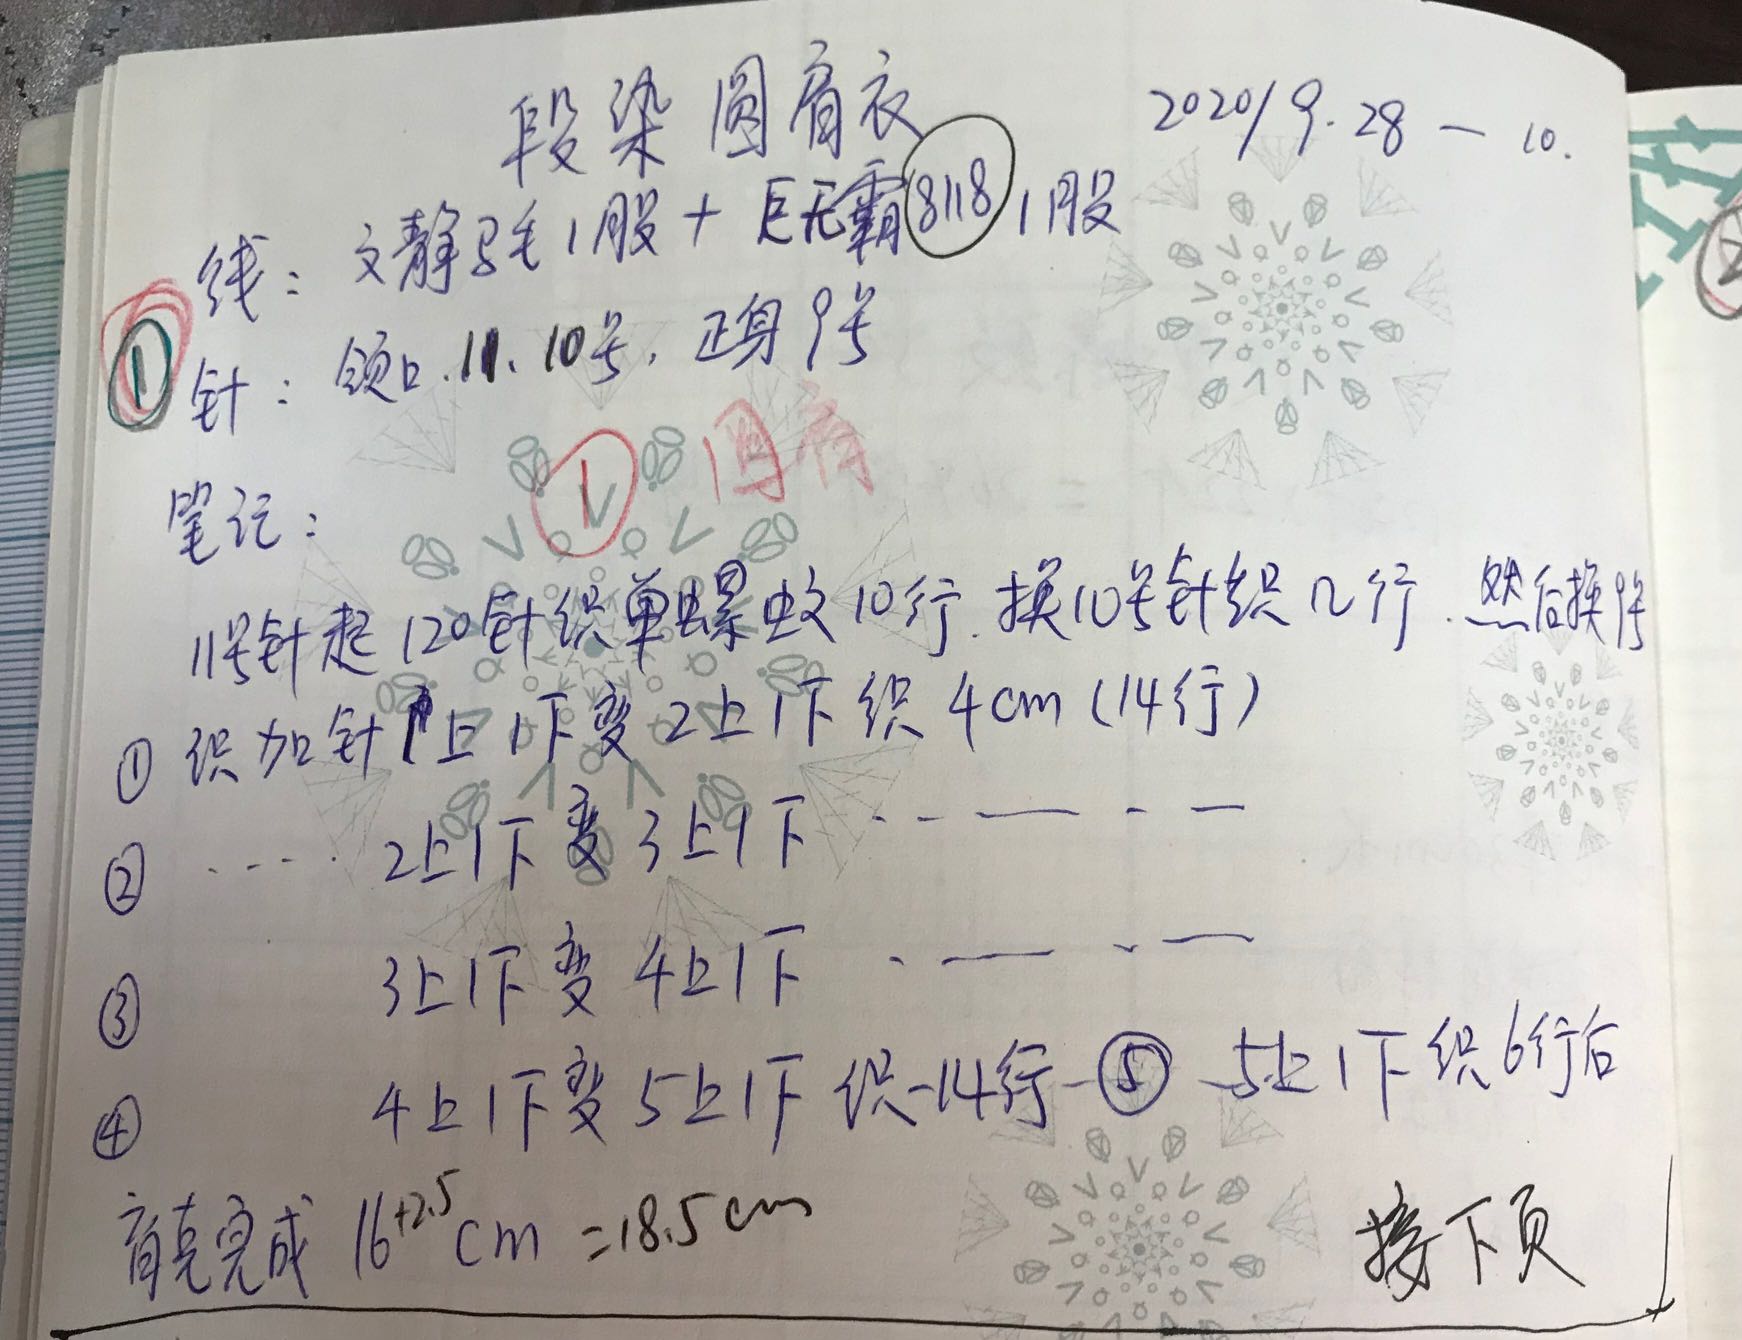 段染圆肩衣 2020/9.28 — 10.
线: 文静马毛1股+巨无霸8118 1股
① 针: 领口.11.10号. 正身9号
① 圆肩
笔记:
11号针起120针织单螺蚊10行.换10号针织几行.然后换9号
① 织加针1上1下变2上1下织4cm(14行)
② ···· 2上1下变3上1下 ··—·—
③ 3上1下变4上1下 ·—·—
④ 4上1下变5上1下织14行 ⑤ 5上1下织6行后
肩完完成 16+2.5cm=18.5cm 接下页